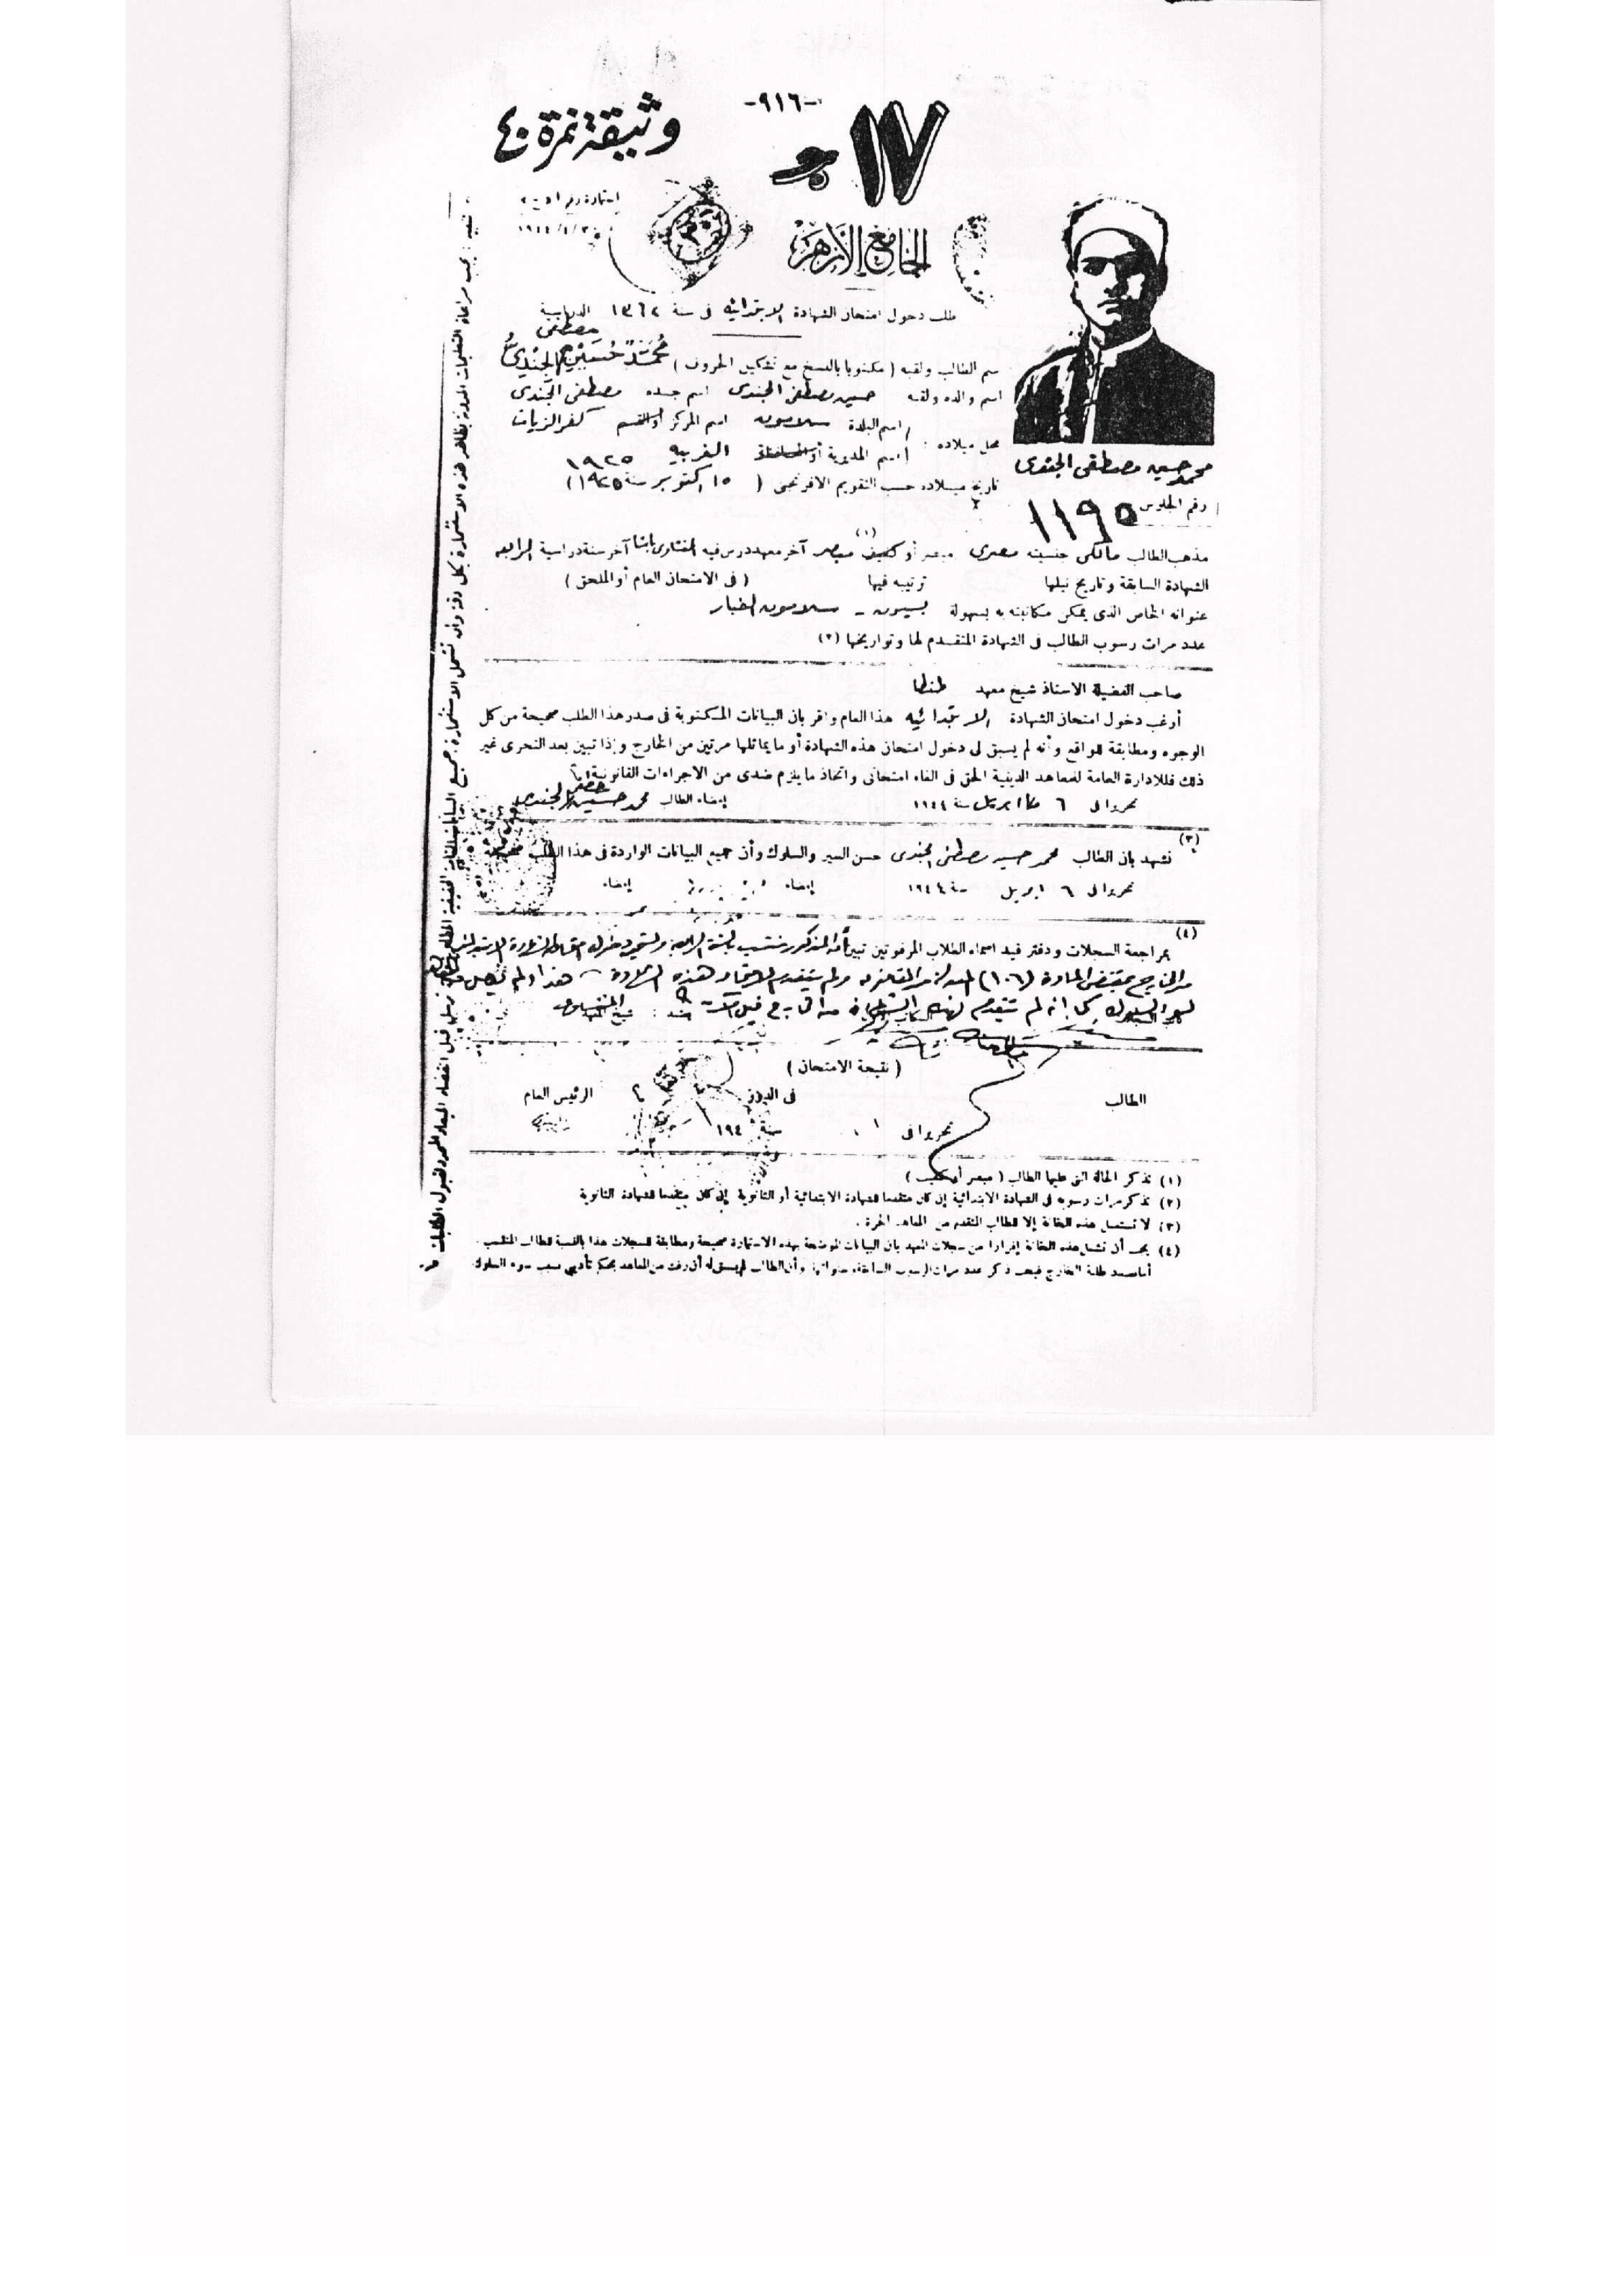 -٩١٦-
وثيقة نمرة ٤٠
١٧
استمارة رقم
الجامع الأزهر
طلب دخول امتحان الشهادة الابتدائية فى سنة ١٣٦٢ الدراسية
مصطفى
اسم الطالب ولقبه (مكتوبا بالنسخ مع تشكيل الحروف) مُحَمَّدْ حُسَيْن الجُنْدِى
اسم والده ولقبه حسين مصطفى الجندى اسم جده مصطفى الجندى
محل ميلاده : اسم البلدة سلامون اسم المركز أو القسم كفر الزيات
اسم المديرية أو المحافظة الغربية ١٩٢٥
تاريخ ميلاده حسب التقويم الافرنجى (١٥ اكتوبر سنة ١٩٢٥)
محمد حسين مصطفى الجندى
رقم الجلوس ١١٩٥
مذهب الطالب مالكى جنسيته مصرى مبصر أو كفيف (١) مبصر آخر معهد درس فيه المنشاوى باشا آخر سنة دراسية الرابعة
الشهادة السابقة وتاريخ نيلها ترتيبه فيها (فى الامتحان العام أو الملحق)
عنوانه الخاص الذى يمكن مكاتبته به بسهولة بسيون - سلامون
عدد مرات رسوب الطالب فى الشهادة المتقدم لها وتواريخها (٢)
صاحب الفضيلة الاستاذ شيخ معهد طنطا
أرغب دخول امتحان الشهادة الابتدائية هذا العام وأقر بان البيانات المكتوبة فى صدر هذا الطلب صحيحة من كل
الوجوه ومطابقة للواقع وأنه لم يسبق لى دخول امتحان هذه الشهادة أو ما يماثلها مرتين من الخارج وإذا تبين بعد التحرى غير
ذلك فللادارة العامة للمعاهد الدينية الحق فى الغاء امتحانى واتخاذ ما يلزم ضدى من الاجراءات القانونية
تحريرا فى ٦ ابريل سنة ١٩٤٤ إمضاء الطالب محمد حسين مصطفى الجندى
(٣)
نشهد بان الطالب محمد حسين مصطفى الجندى حسن السير والسلوك وأن جميع البيانات الواردة فى هذا الطلب صحيحة
تحريرا فى ٦ ابريل سنة ١٩٤٤ إمضاء إمضاء
(٤)
بمراجعة السجلات ودفتر قيد اسماء الطلاب المرفوتين تبين أن المذكور منتسب بالسنة الرابعة
من الخارج بمقتضى المادة (١٠٦) ولم يتقدم هذه الشهادة هذا ولم يفصل
لسوء السلوك كما انه لم يتقدم من الخارج قبل
(نتيجة الامتحان)
الطالب فى الدور الرئيس العام
تحريرا فى سنة ١٩٤
(١) تذكر الحالة التى عليها الطالب (مبصر أو كفيف)
(٢) تذكر مرات رسوبه فى الشهادة الابتدائية إن كان متقدما للشهادة الابتدائية أو الثانوية إن كان متقدما للشهادة الثانوية
(٣) لا تستعمل هذه الخانة إلا للطالب المتقدم من المعاهد الحرة .
(٤) يجب أن تشمل هذه الخانة إقرارا من سجلات المعهد بان البيانات الموضحة بهذه الاستمارة صحيحة ومطابقة للسجلات هذا بالنسبة للطالب المنتسب .
تنبيه : يجب مراعاة التعليمات المدونة بظاهر هذه الاستمارة بكل دقة وأن تشمل الاستمارة جميع البيانات